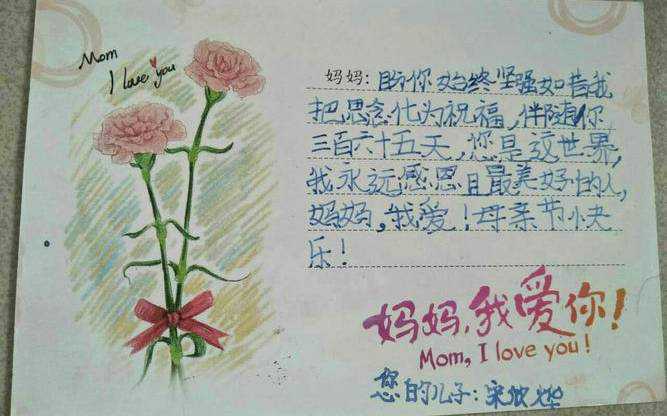 Mom
I love you
妈妈:盼你始终坚强如昔我
把思念化为祝福,伴随你
三百六十五天,您是这世界,
我永远感恩且最美好的人,
妈妈,我爱!母亲节快
乐!
妈妈,我爱你!
Mom, I love you!
您的儿子:宋